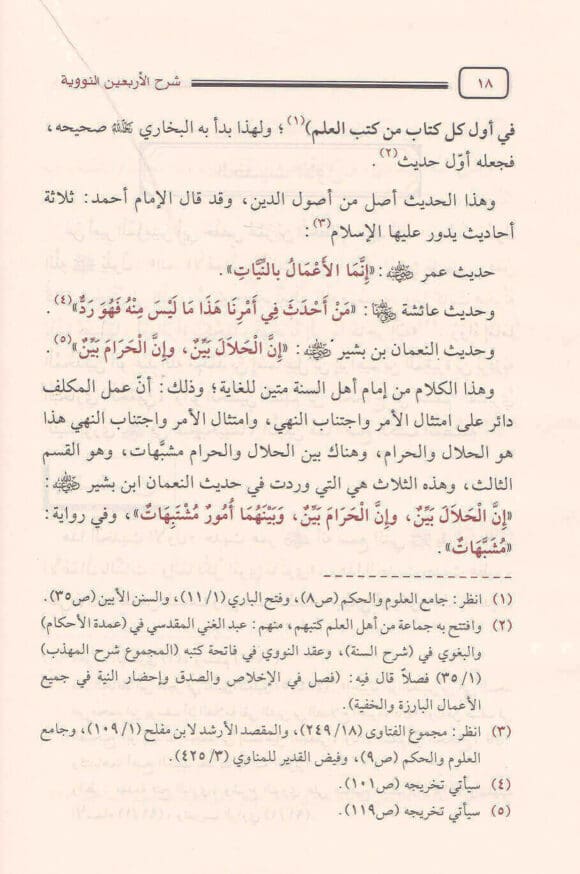 ١٨ شرح الأربعين النووية
في أول كل كتاب من كتب العلم)(١)؛ ولهذا بدأ به البخاري رحمه الله صحيحه،
فجعله أوّل حديث(٢).
وهذا الحديث أصل من أصول الدين، وقد قال الإمام أحمد: ثلاثة
أحاديث يدور عليها الإسلام(٣):
حديث عمر رضي الله عنه: «إِنَّمَا الأَعْمَالُ بالنِّيَّاتِ».
وحديث عائشة رضي الله عنها: «مَنْ أَحْدَثَ فِي أَمْرِنَا هَذَا مَا لَيْسَ مِنْهُ فَهُوَ رَدٌّ»(٤).
وحديث النعمان بن بشير رضي الله عنه: «إِنَّ الْحَلَالَ بَيِّنٌ، وإِنَّ الْحَرَامَ بَيِّنٌ»(٥).
وهذا الكلام من إمام أهل السنة متين للغاية؛ وذلك: أنّ عمل المكلف
دائر على امتثال الأمر واجتناب النهي، وامتثال الأمر واجتناب النهي هذا
هو الحلال والحرام، وهناك بين الحلال والحرام مشبَّهات، وهو القسم
الثالث، وهذه الثلاث هي التي وردت في حديث النعمان ابن بشير رضي الله عنه:
«إِنَّ الْحَلَالَ بَيِّنٌ، وإِنَّ الْحَرَامَ بَيِّنٌ، وَبَيْنَهُمَا أُمُورٌ مُشْتَبِهَاتٌ»، وفي رواية:
«مُشَبَّهَاتٌ».
(١) انظر: جامع العلوم والحكم (ص٨)، وفتح الباري (١/ ١١)، والسنن الأبين (ص٣٥).
(٢) وافتتح به جماعة من أهل العلم كتبهم، منهم: عبد الغني المقدسي في (عمدة الأحكام)
والبغوي في (شرح السنة)، وعقد النووي في فاتحة كتبه (المجموع شرح المهذب)
(١/ ٣٥) فصلاً قال فيه: (فصل في الإخلاص والصدق وإحضار النية في جميع
الأعمال البارزة والخفية).
(٣) انظر: مجموع الفتاوى (١٨/ ٢٤٩)، والمقصد الأرشد لابن مفلح (١/ ١٠٩)، وجامع
العلوم والحكم (ص٩)، وفيض القدير للمناوي (٣/ ٤٢٥).
(٤) سيأتي تخريجه (ص١٠١).
(٥) سيأتي تخريجه (ص١١٩).